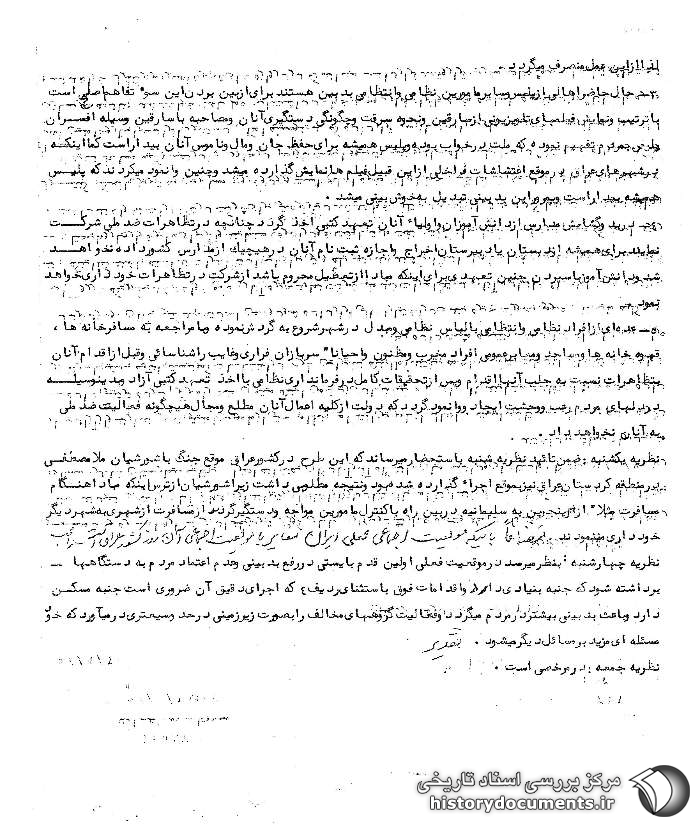 لذا از این عمل منصرف میگردد.
۳- در حال حاضر اهالی از پلیس و سایر مامورین نظامی و انتظامی بدبین هستند برای از بین بردن این سوء تفاهم اصلح است
با ترتیب و نمایش فیلمهای تلویزیونی از سارقین و نحوه سرقت و چگونگی دستگیری آنان و مصاحبه با سارقین وسیله افسران
پلیس بمردم تفهیم نمود که ملت در خواب بوده و پلیس همیشه برای حفظ جان و مال و ناموس آنان بیدار است کما اینکه
در شهرهای عراق در موقع اغتشاشات فراخلی از این قبیل فیلم ها نمایش گذارده میشد و چنین وانمود میکردند که پلیس
همیشه بیدار است و بمرور این بدبینی تبدیل به خوش بینی میشد.
بازگشایش مدارس از دانش آموزان و اولیاء آنان تعهد کتبی اخذ گردد چنانچه در تظاهرات ضد ملی شرکت
نمایند برای همیشه از دبستان یا دبیرستان اخراج و اجازه ثبت نام آنان در هیچیک از مدارس کشور داده نخواهد
شد و دانش آموز با سپردن چنین تعهدی برای اینکه مبادا از تحصیل محروم باشد از شرکت در تظاهرات خودداری خواهد
نمود.
۵- عده ای از افراد نظامی و انتظامی با لباس نظامی و مبدل در شهر شروع به گردش نموده و با مراجعه به مسافرخانه ها،
قهوه خانه ها و مساجد و سایر عمومی افراد مخرب و مظنون و احیانا" سربازان فراری و غایب را شناسائی و قبل از اقدام آنان
بتظاهرات نسبت به جلب آنها اقدام و پس از تحقیقات کامل در فرمانداری نظامی با اخذ تعهد کتبی آزاد و بدینوسیله
در دلهای مردم رعب و وحشت ایجاد و وانمود گردد که دولت از کلیه اعمال آنان مطلع و مجال هیچگونه فعالیت ضد ملی
به آنان نخواهد داد.
نظریه یکشنبه: ضمن تائید نظریه شنبه باستحضار میرساند که این طرح در کشور عراق موقع جنگ با شورشیان ملا مصطفی
در منطقه کردستان عراق نیز بموقع اجراء گذارده شده بود و نتیجه مطلوبی داشت زیرا شورشیان از ترس اینکه مبادا هنگام
مسافرت مثلا" از پنجوین به سلیمانیه در بین راه با کنترل مامورین مواجه و دستگیر گردند از مسافرت از شهری به شهر دیگر
خودداری مینمودند. با موقعیت اجتماعی فعلی ایران مغایر با موقعیت اجتماعی آن روز کشور عراق است
نظریه چهارشنبه: بنظر میرسد در موقعیت فعلی اولین قدم بایستی در رفع بدبینی و عدم اعتماد مردم به دستگاهها
برداشته شود که جنبه بنیادی دارد و اقدامات فوق باستثنای ردیف ۴ که اجرای دقیق آن ضروری است جنبه مسکن
دارد و باعث بدبینی بیشتر در مردم میگردد و فعالیت گروههای مخالف را بصورت زیرزمینی در حد وسیعتری در میآورد که خود
مسئله ای مزید بر مسائل دیگر میشود. تقدیر
نظریه جمعه: در مرخصی است.
مرکز بررسی اسناد تاریخی
historydocuments.ir